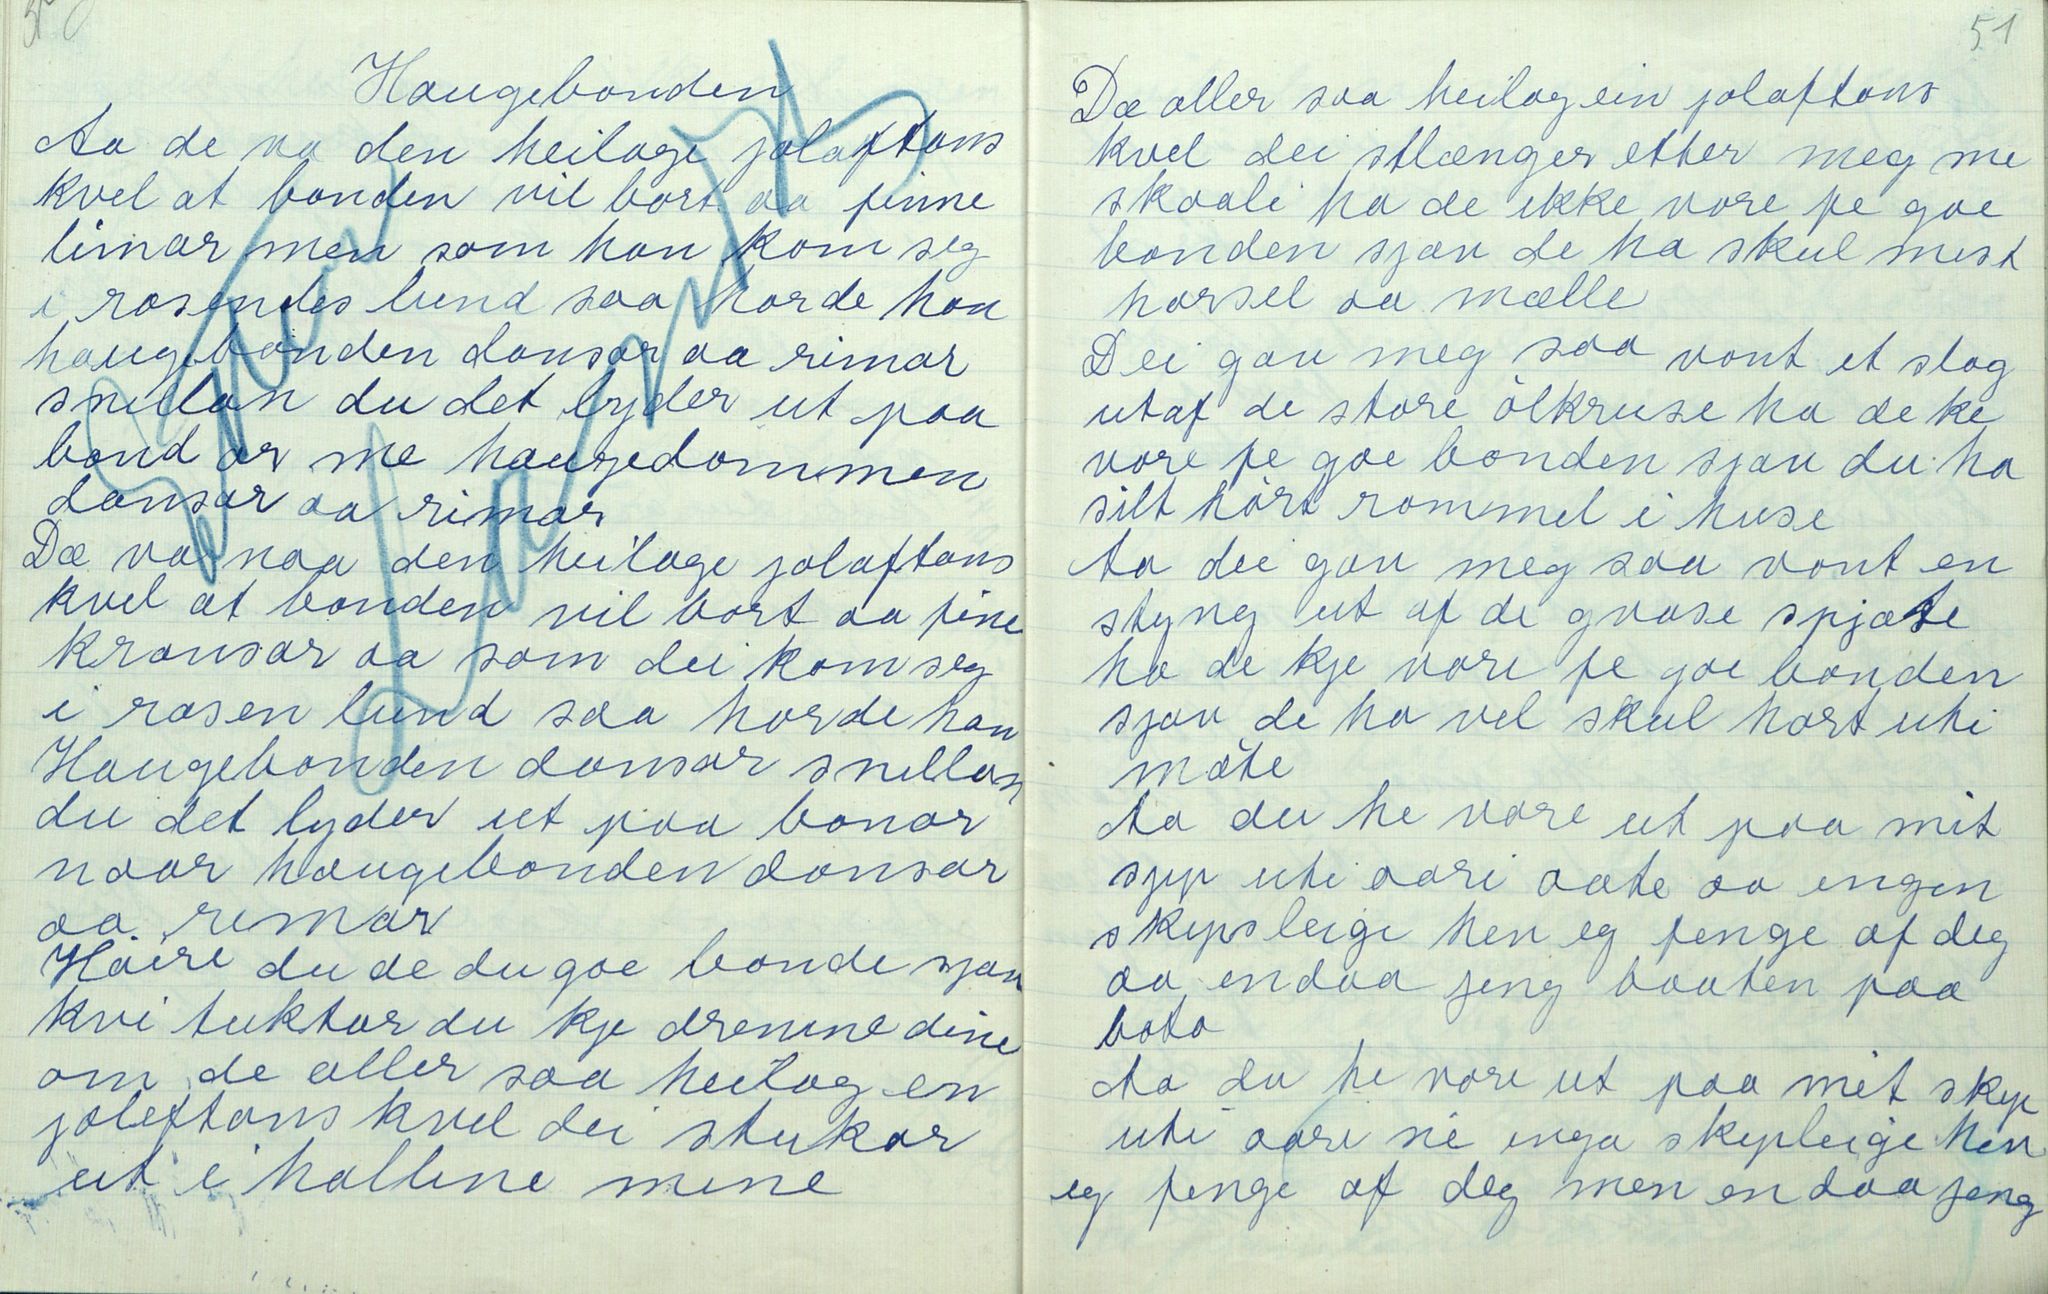 Haugebonden
Aa de va den heilage jolaftans
kvel at bonden vil bort aa finne
limar men som han kom seg
i rosendes lund saa horde han
haugebonden dansar aa rimar
snillan du det lyder ut paa
bond ar me haugedommen
dansar aa rimar
Dæ va naa den heilage jolaftans
kvel at bonden vil bort aa fine
kransar aa som dei kom seg
i rosen lund saa horde han
Haugebonden dansar snillan
du det lyder ut paa bonar
naar haugebonden dansar
aa remar
Høire du de du goe bonde sjøv
kvi tuktar du kje drenne dine
om de aller saa heilag en
joleftans kvel dei stukar
ut i hallene mine
51
Dæ aller saa heilag ein jolaftans
kvel dei slænger etter meg me
skaali ha de ikke vore fe goe
bonden sjav de ha skul mist
horsel aa mælle
Dei gav meg saa vont et slag
utaf de store ölkruse ha de ke
vore fe goe bonden sjav du ha
silt hört rommel i huse
Aa dei gav meg saa vont en
styng ut af de gvase spjøte
ha de kje vore fe goe bonden
sjav de ha vel skul hart uti
møte
Aa du he vore ut paa mit
sjyp uti aari aate aa engen
skypsleige hen eg fenge af deg
aa endaa jeng baaten paa
bota
Aa du he vore ut paa mit skyp
uti aari ni inga skypleige hen
eg fenge af deg men en daa jeng